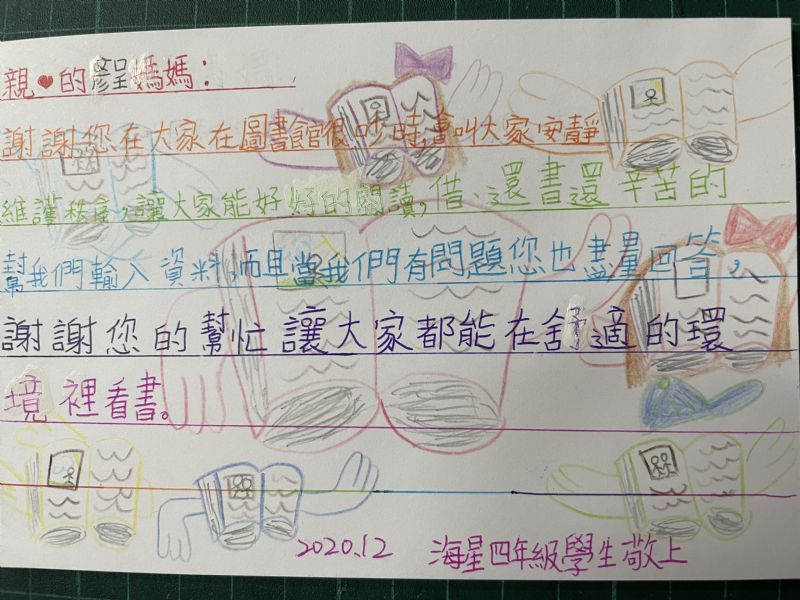 親❤的彥呈媽媽：
謝謝您在大家在圖書館很吵時,會叫大家安靜
維護秩序,讓大家能好好的閱讀,借、還書還辛苦的
幫我們輸入資料,而且當我們有問題您也盡量回答,
謝謝您的幫忙讓大家都能在舒適的環
境裡看書。
2020.12 海星四年級學生敬上